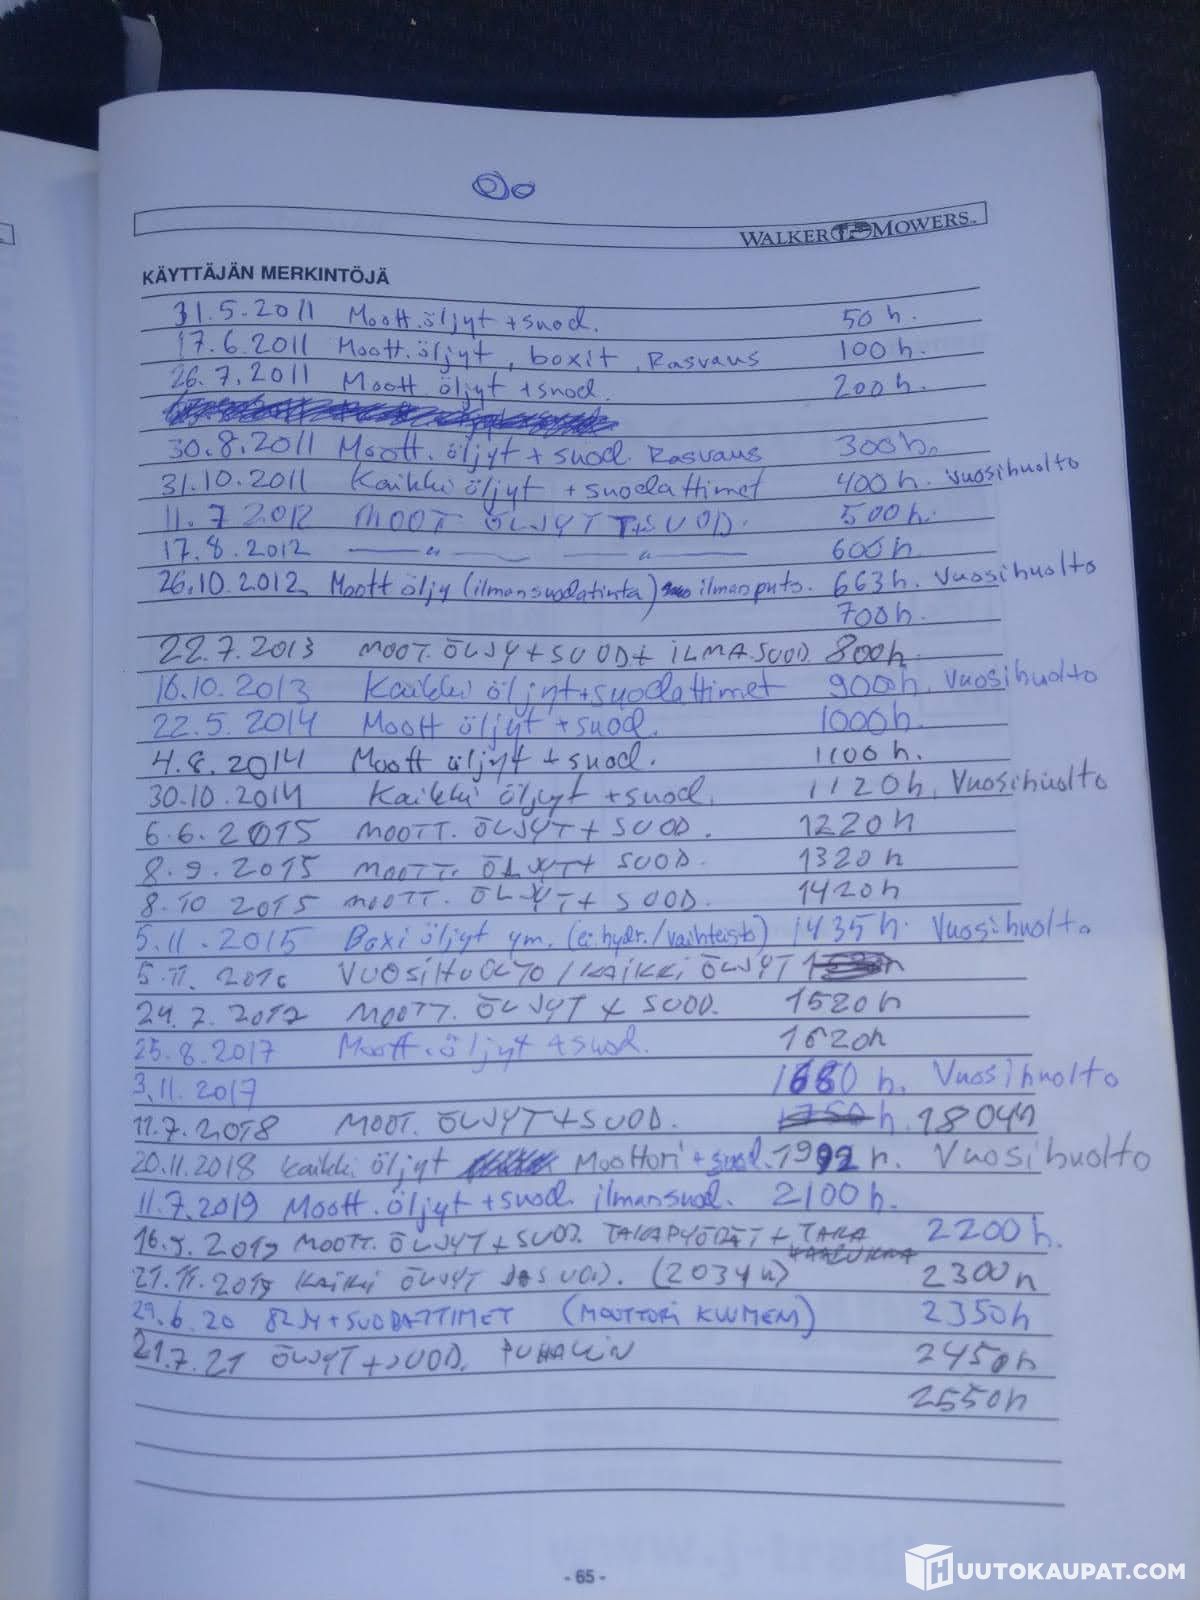 WALKER MOWERS
KÄYTTÄJÄN MERKINTÖJÄ
31.5.2011 Moott.öljyt + suod. 50 h.
17.6.2011 Moott.öljyt, boxit, Rasvaus 100 h.
26.7.2011 Moott öljyt + suod. 200 h.
30.8.2011 Moott. öljyt + suod. Rasvaus 300 h.
31.10.2011 Kaikki öljyt + suodattimet 400 h. Vuosihuolto
11.7 2012 MOOT. ÖLJYT + SUOD. 500 h.
17.8.2012 — " — — " — 600 h
26.10.2012 Moott öljy (ilmansuodatinta) ilmanputs. 663 h. Vuosihuolto
700 h.
22.7.2013 MOOT. ÖLJY + SUOD + ILMA.SUOD 800 h
16.10.2013 Kaikki öljyt + suodattimet 900 h. Vuosihuolto
22.5.2014 Moott öljyt + suod. 1000 h.
4.8.2014 Moott öljyt + suod. 1100 h.
30.10.2014 Kaikki öljyt + suod. 1120 h. Vuosihuolto
6.6.2015 MOOTT. ÖLJYT + SUOD. 1220 h
8.9.2015 MOOTT. ÖLJYT + SUOD. 1320 h
8.10 2015 MOOTT. ÖLJYT + SUOD. 1420 h
5.11.2015 Boxi öljyt ym. (ei hydr./vaihteisto) 1435 h. Vuosihuolto
5.11.2016 VUOSIHUOLTO / KAIKKI ÖLJYT
24.7.2017 MOOTT. ÖLJYT + SUOD. 1520 h
25.8.2017 Moott. öljyt + suod. 1620 h
3.11.2017 1680 h. Vuosihuolto
11.7.2018 MOOT. ÖLJYT + SUOD. h. 1804 h
20.11.2018 Kaikki öljyt Moottori + suod. 1992 h. Vuosihuolto
11.7.2019 Moott. öljyt + suod. ilmansuod. 2100 h.
16.9.2019 MOOTT. ÖLJYT + SUOD. TAKAPYÖRÄT + TAKA 2200 h.
21.11.2019 KAIKKI ÖLJYT SUOD. (2034 h) 2300 h
29.6.20 ÖLJY + SUODATTIMET (MOOTTORI KUUMENI) 2350 h
21.7.21 ÖLJYT + SUOD. PUHALLIN 2450 h
2550 h
- 65 -
HUUTOKAUPAT.COM